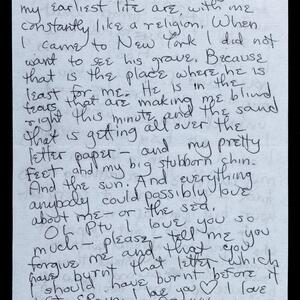 my earliest life are with me
constantly like a religion. When
I came to New York I did not
want to see his grave. Because
that is the place where he is
least for me. He is in the
tears that are making me blind
right this minute and the sand
that is getting all over the
letter paper— and my pretty
feet and my big stubborn chin.
And the sun. And everything
anybody could possibly love
about me— or the sea.
Oh I love you so
much— please tell me you
forgive me and that you
have burnt that letter which
I should have burnt before it
I beg you ♡ I love